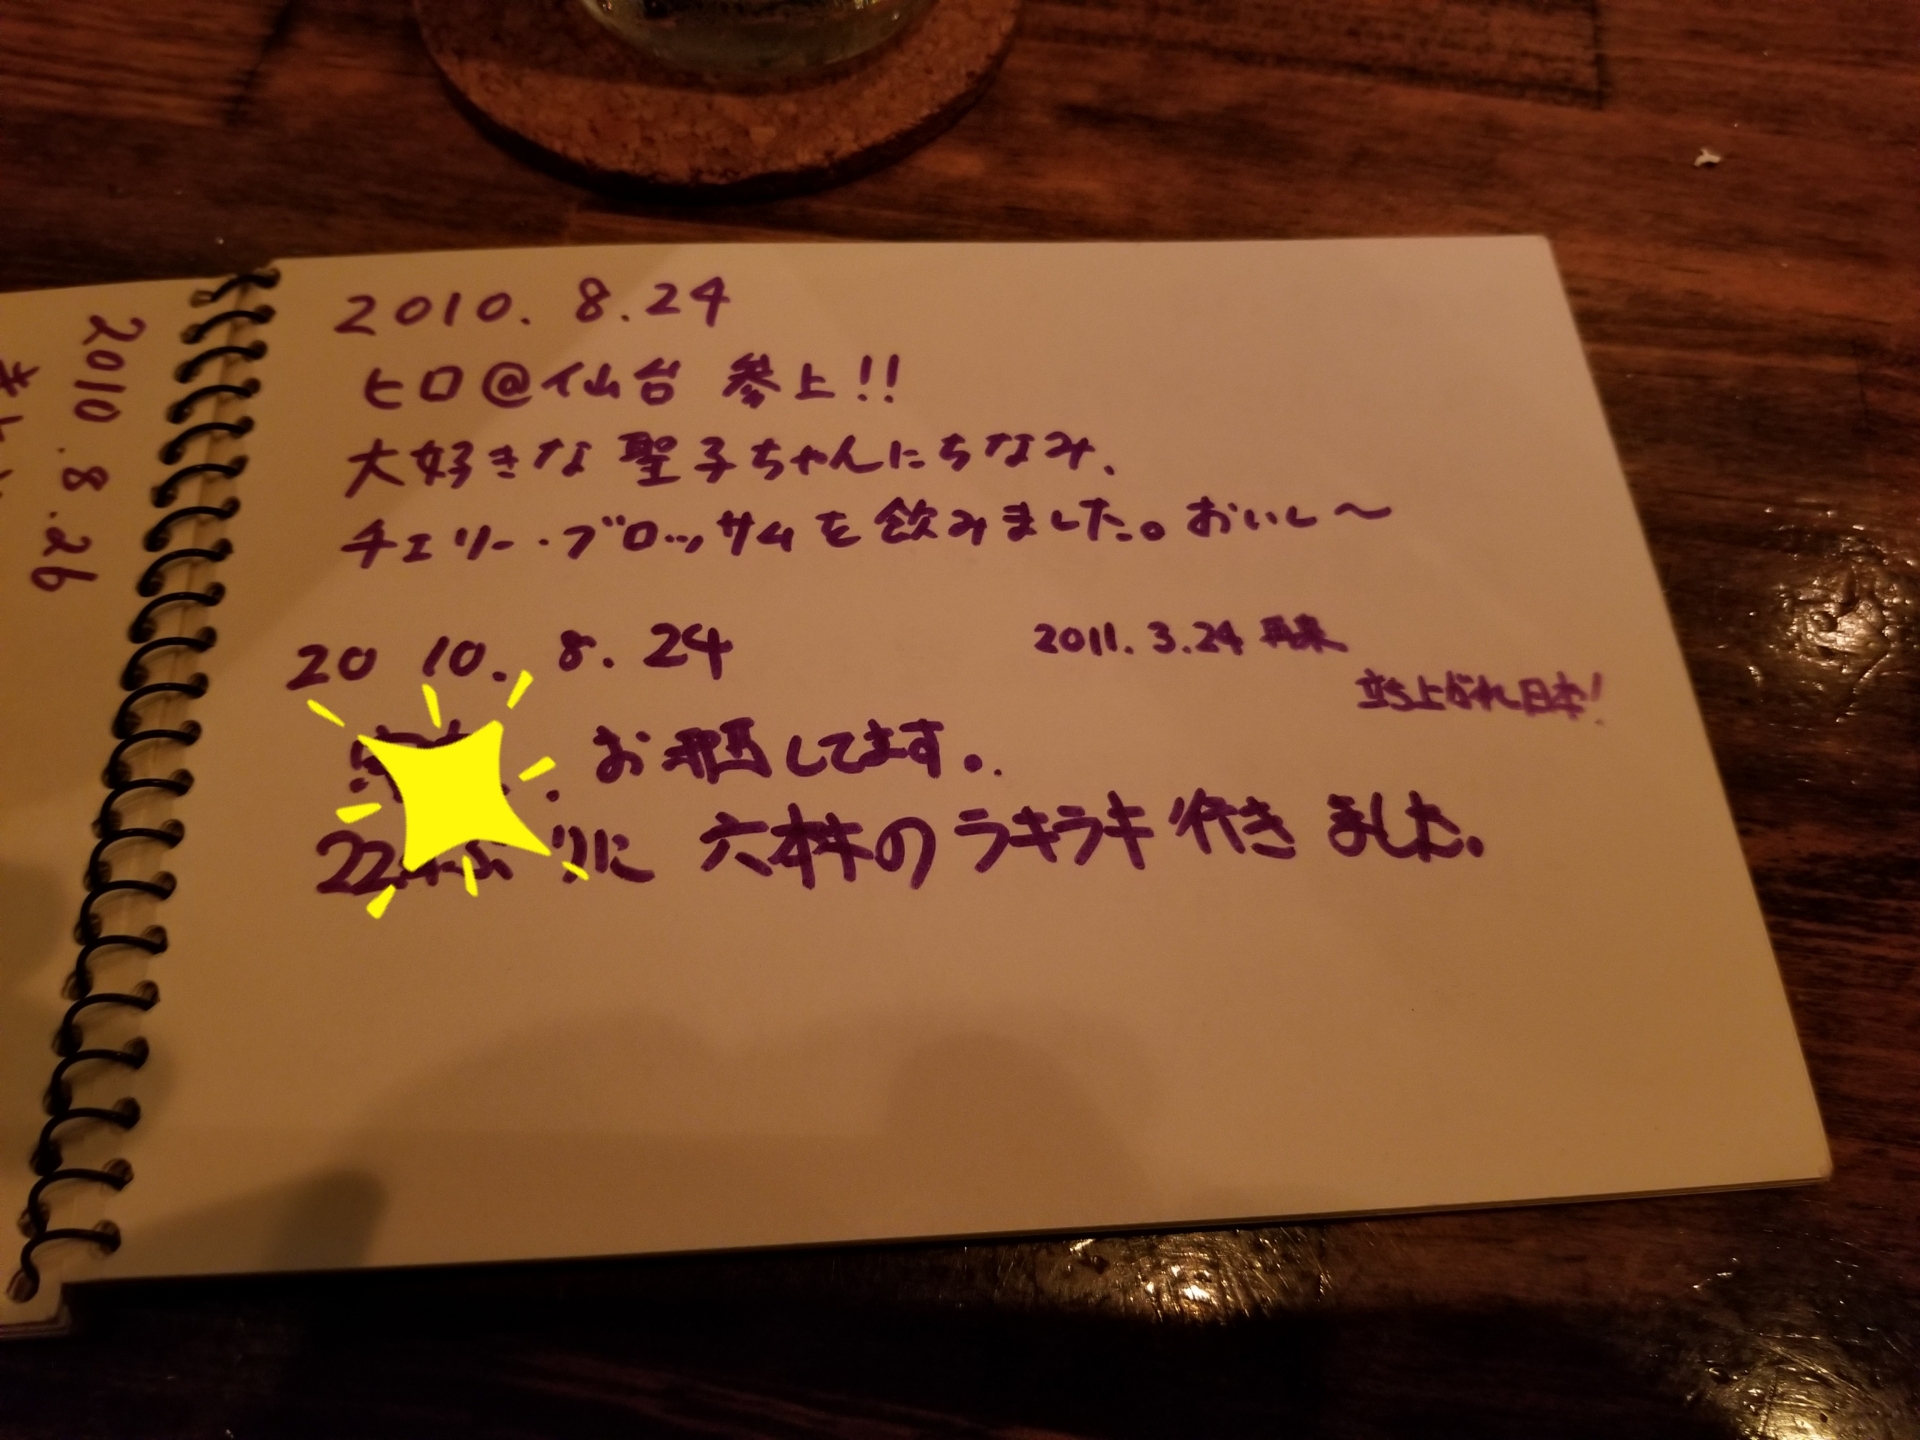 2010. 8. 24
ヒロ@仙台 参上!!
大好きな聖子ちゃんにちなみ、
チェリー・ブロッサムを飲みました。おいし〜
2010. 8. 24
2011. 3. 24 再来
立ち上がれ日本!
お邪魔してます。
22 りに 六本木の ラキラキ 行き ました。
2010. 8. 26